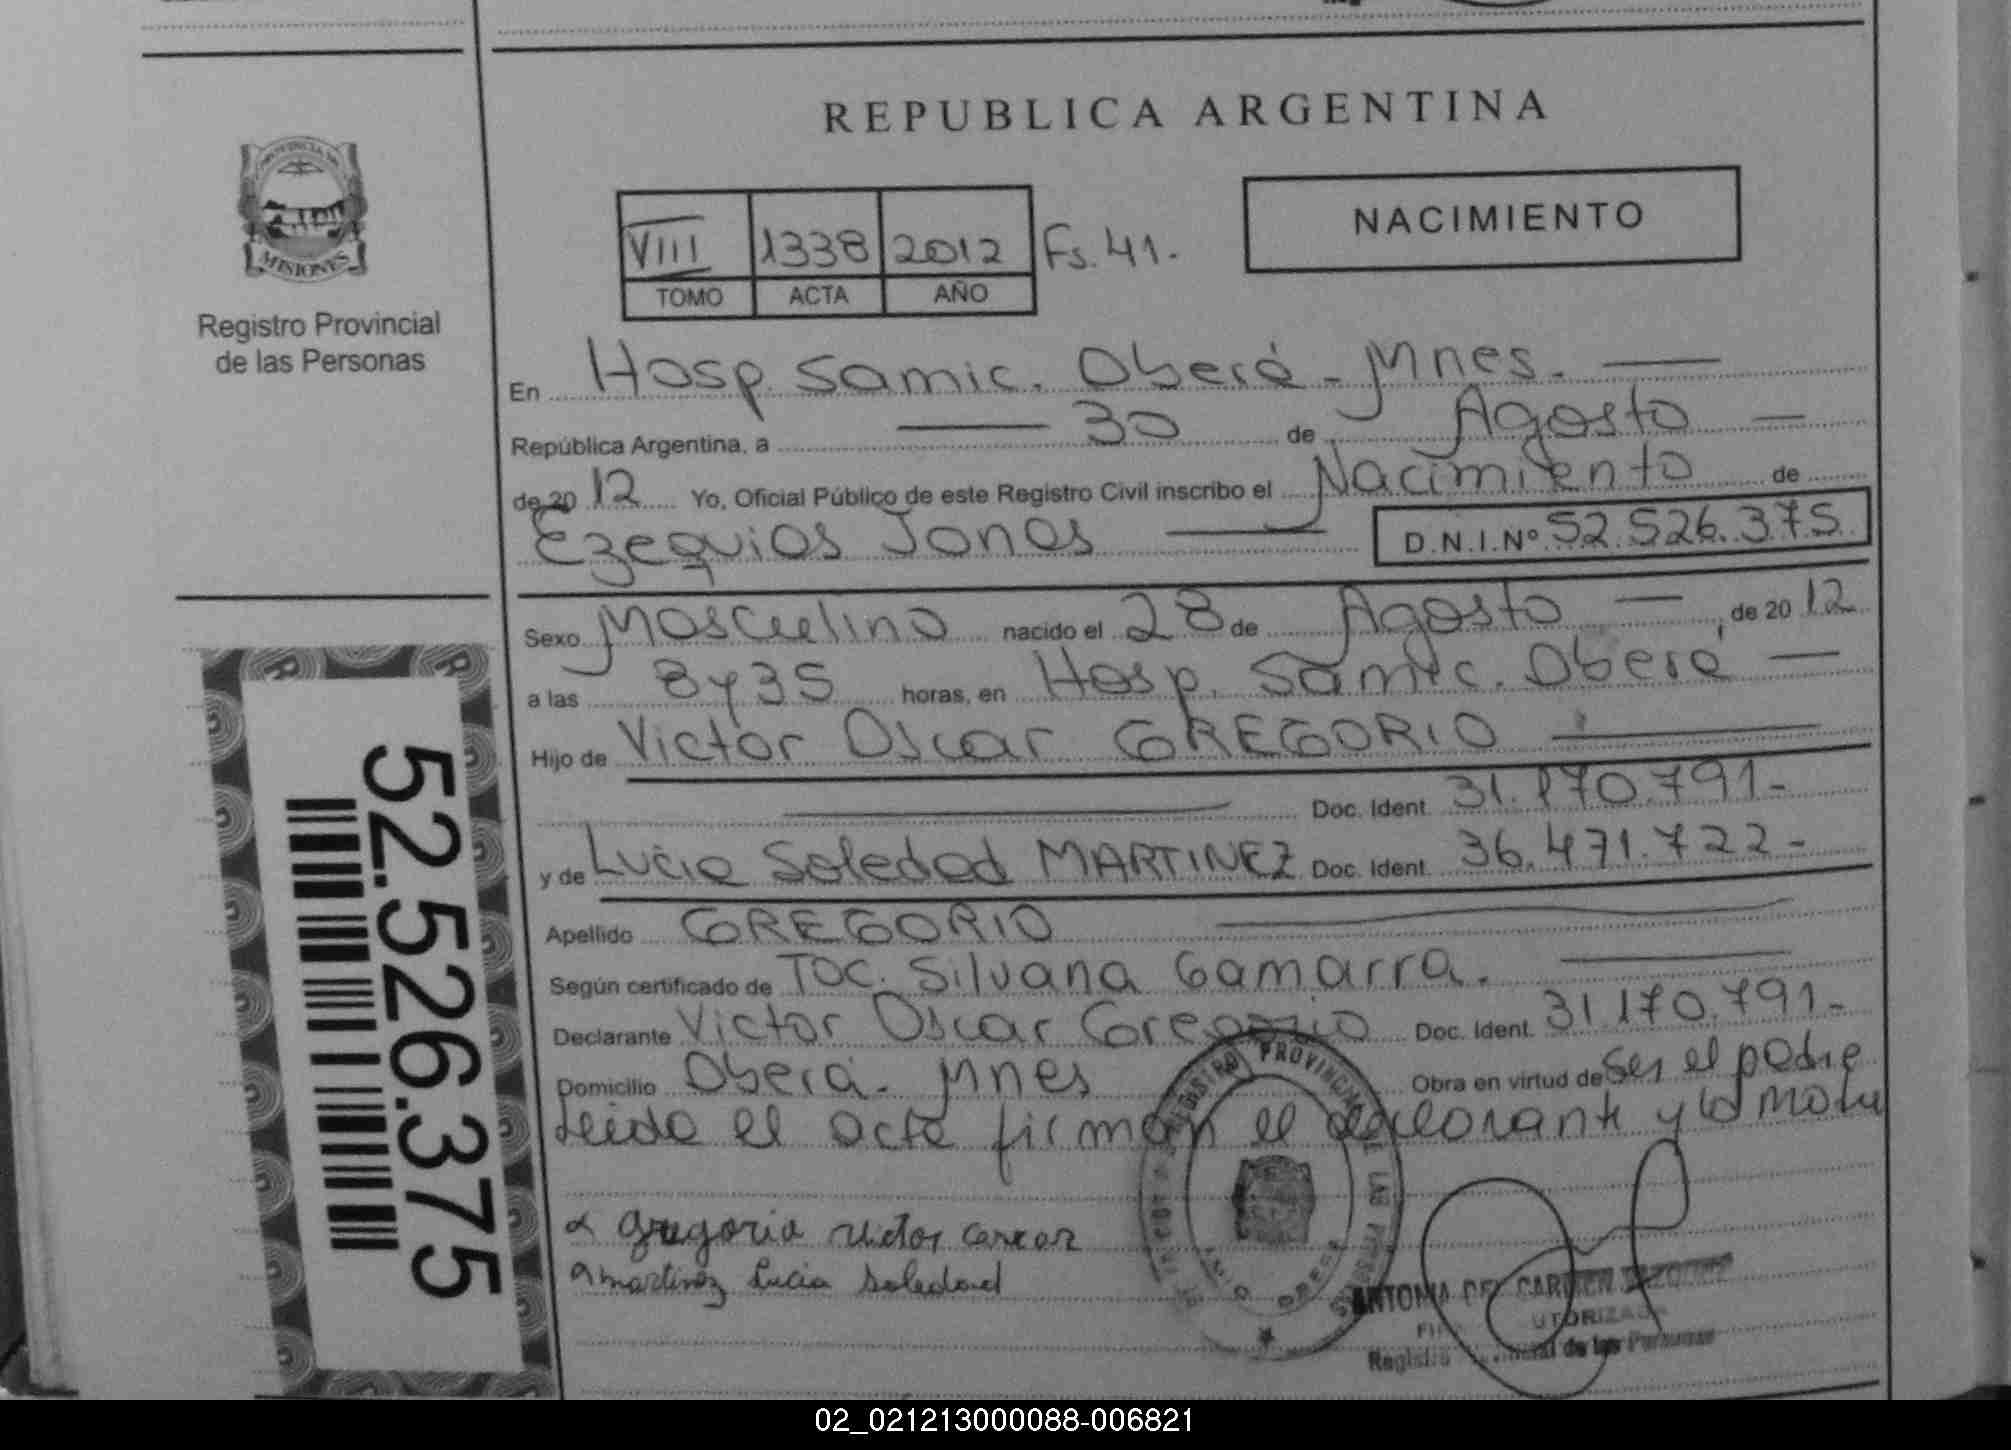 REPUBLICA ARGENTINA
PROVINCIA DE
MISIONES
Registro Provincial
de las Personas
NACIMIENTO
VIII 1338 2012 Fs. 41.
TOMO ACTA AÑO
En Hosp. Samic. Oberá - Mnes.
República Argentina, a 30 de Agosto
de 20 12 Yo, Oficial Público de este Registro Civil inscribo el Nacimiento de
Ezequias Jonas D.N.I.Nº 52.526.375
Sexo Masculino nacido el 28 de Agosto, de 20 12
a las 8 y 35 horas, en Hosp. Samic. Oberá
Hijo de Victor Oscar GREGORIO
Doc. Ident. 31.170.791-
y de Lucia Soledad MARTINEZ Doc. Ident. 36.471.722-
Apellido GREGORIO
Según certificado de Toc. Silvana Gamarra.
Declarante Victor Oscar Gregorio Doc. Ident. 31.170.791-
Domicilio Oberá - Mnes Obra en virtud de ser el padre
Leida el acta firman el declarante y la
Gregorio Victor
Martinez Lucia Soledad
REGISTRO PROVINCIAL DE LAS PERSONAS
OBERA
ANTONIA DEL CARMEN
de las Personas
52.526.375
02_021213000088-006821